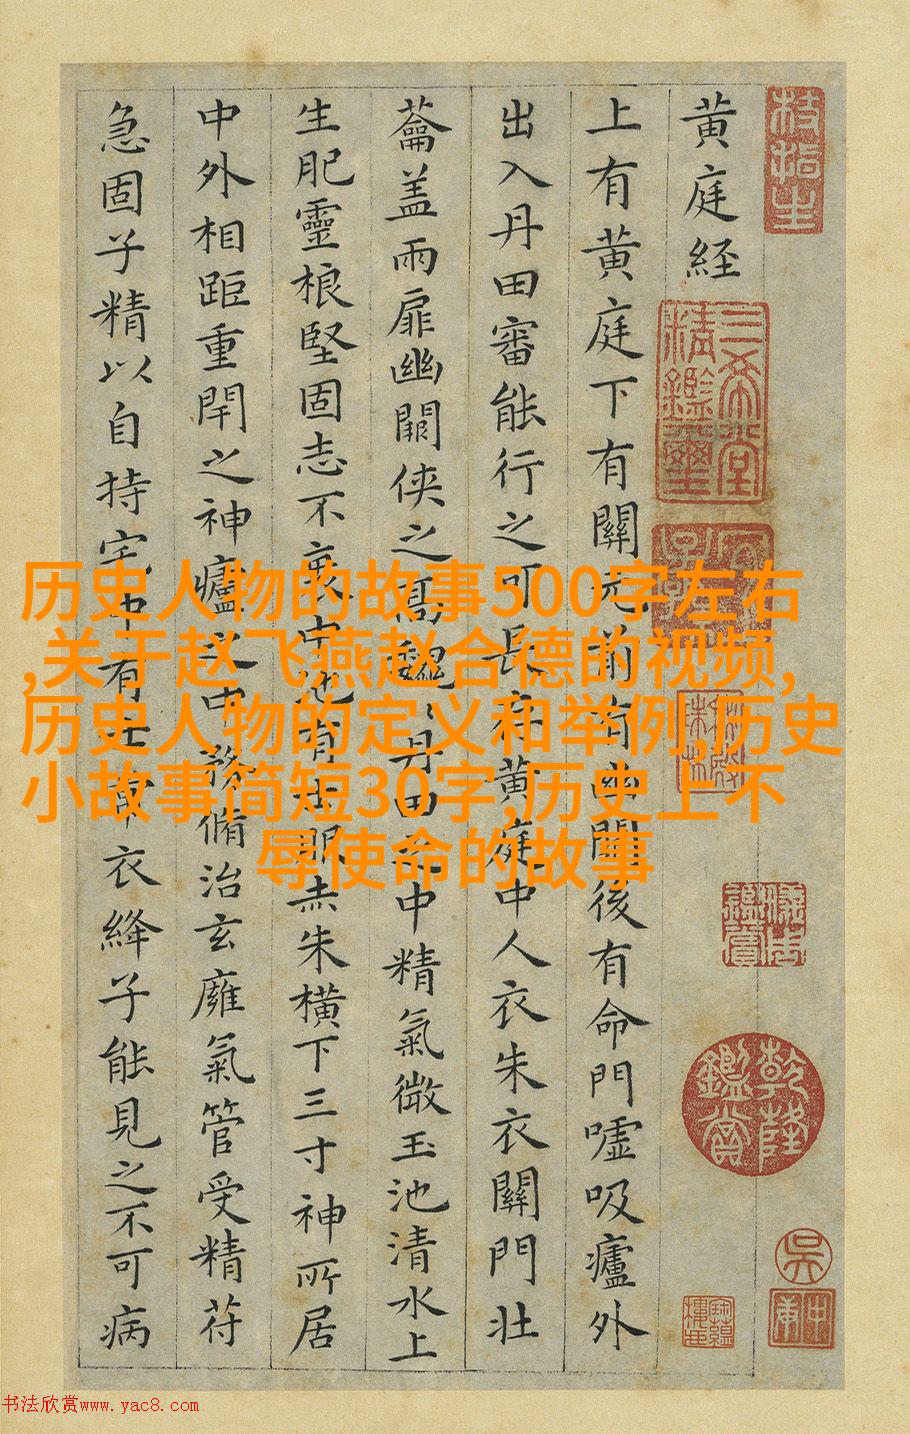 枝指生
黄庭経
上有黄庭下有關元前有幽闕後有命門嘘吸廬外
出入丹田審能行之可長存黄庭中人衣朱衣關門壮
蘥盖兩扉幽闕侠之髙巍〻丹田之中精氣微玉池清水上
生肥靈根堅固志不衰中池有士服赤朱横下三寸神所居
中外相距重閈之神廬之中務脩治玄廱氣管受精苻
急固子精以自持宅中有士常衣絳子能見之不可病
三希堂精鑑璽
乾隆鑑賞
吳
历史人物的故事500字左右
,关于赵飞燕赵合德的视频,
历史人物的定义和举例,历史
小故事简短30字,历史上不
辱使命的故事
书法欣赏www.yac8.com